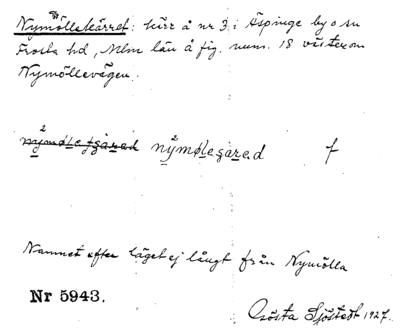 Nymöllekärret: kärr å nr 3 i Äspinge by o sn
Frosta hd, Mlm län å fig. num. 18 väster om
Nymöllevägen.
nymølegäred f
Namnet efter läget ej långt från Nymölla
Nr 5943.
Gösta Sjöstedt 1927.